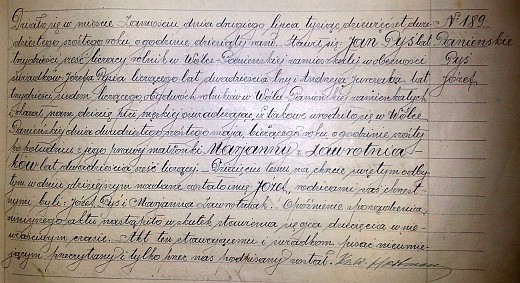 Działo się w mieście Zamościu dnia drugiego lipca tysiąc dziewięćset dwu- № 189.
dziestego szóstego roku o godzinie dziesiątej rano. Stawił się: Jan Pyś lat Panieńskie
trzydzieści sześć liczący rolnik w Wólce-Panieńskiej zamieszkały w obecności Pyś
świadków: Józefa Pępia liczącego lat dwadzieścia trzy i Andrzeja lat Józef.
trzydzieści siedem liczącego obydwóch rolników w Wólce-Panieńskiej zamieszkałych
i okazał nam dziecię płci męskiej oświadczając iż takowe urodziło się w Wólce
Panieńskiej dnia dwudziestego szóstego maja, bieżącego roku o godzinie szóstej
po południu z jego prawej małżonki Marjanny z Lawrotnia-
ków lat dwadzieścia sześć liczącej. – Dziecięciu temu na chrzcie świętym odby-
tym w dniu dzisiejszym nadane zostało imię Józef, rodzicami zaś chrzest-
nymi byli: Józef Pyś i Marjanna Lawrotniak. Opóźnienie sporządzenia
niniejszego aktu nastąpiło wskutek stawienia się ojca dziecięcia w nie-
właściwym czasie. – Akt ten stawającemu i świadkom pisać nieumie-
jącym przeczytany i tylko przez nas podpisany został.